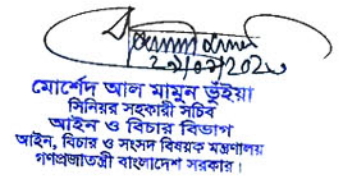 মোর্শেদ আল মামুন ভুঁইয়া
সিনিয়র সহকারী সচিব
আইন ও বিচার বিভাগ
আইন, বিচার ও সংসদ বিষয়ক মন্ত্রণালয়
গণপ্রজাতন্ত্রী বাংলাদেশ সরকার।